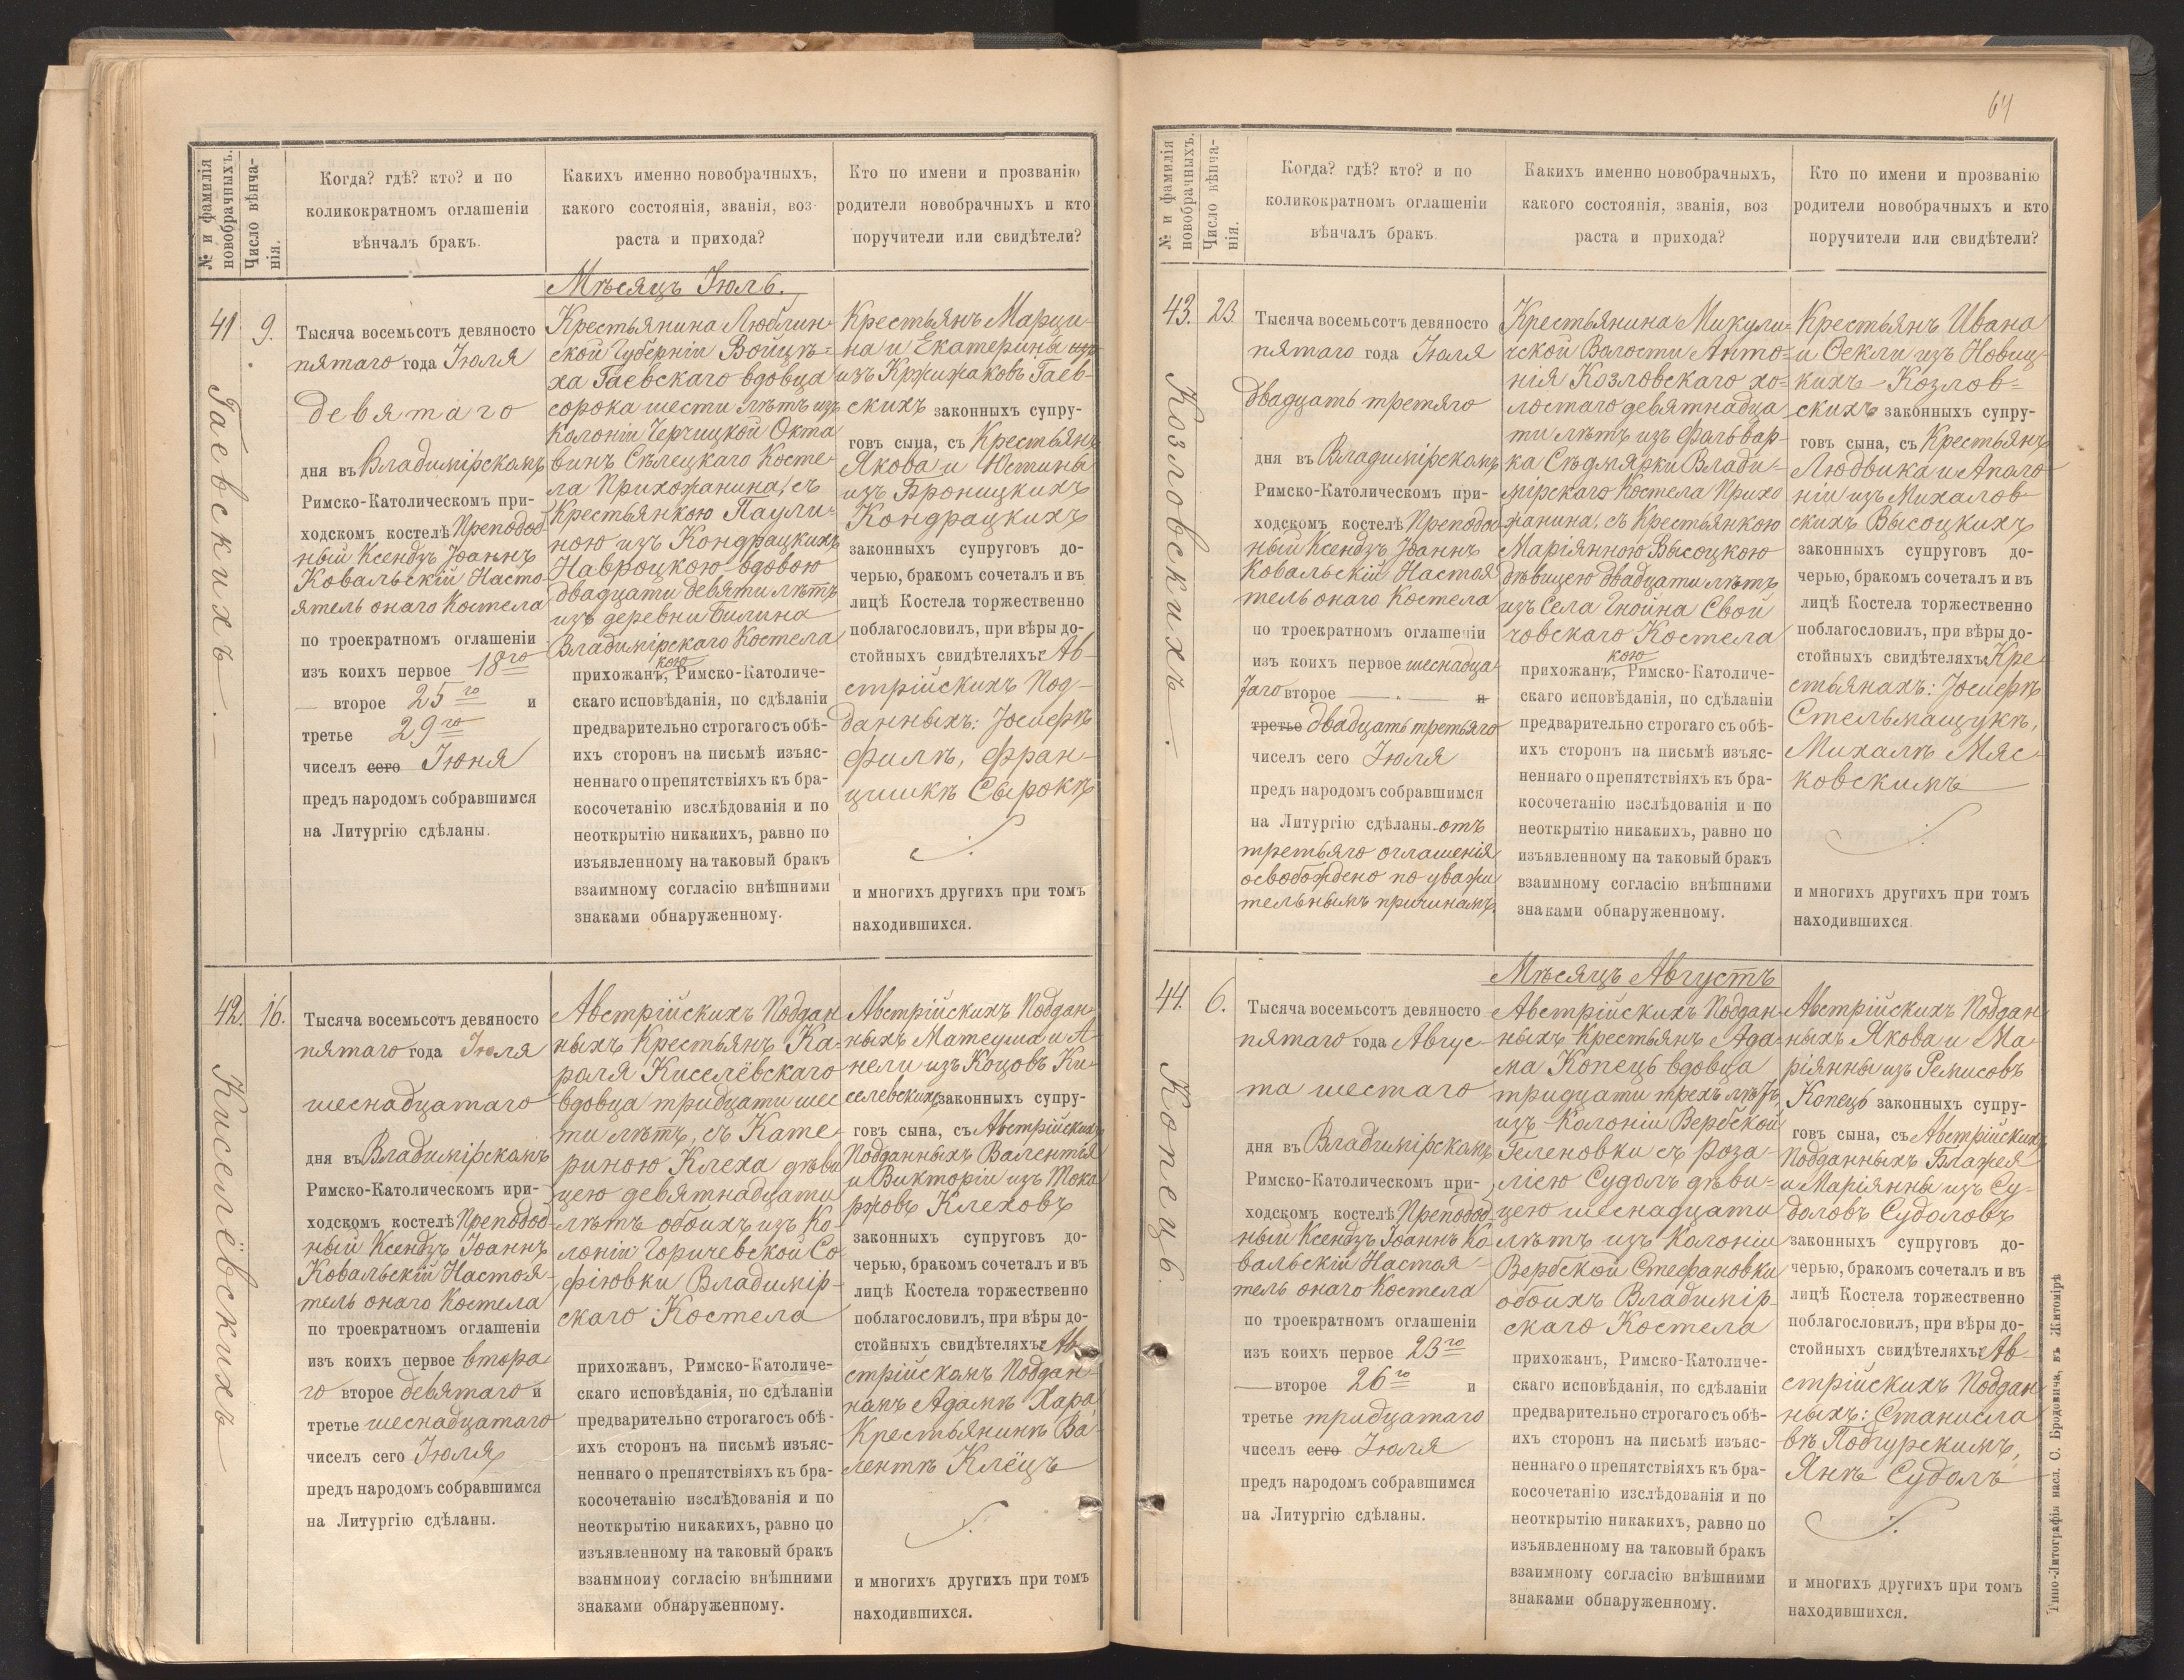 № и фамилія
новобрачныхъ.
Число вѣнча-
нія.
Когда? гдѣ? кто? и по
коликократномъ оглашеніи
вѣнчалъ бракъ.
Какихъ именно новобрачныхъ,
какого состоянія, званія, воз-
раста и прихода?
Кто по имени и прозванію
родители новобрачныхъ и кто
поручители или свидѣтели?
Мѣсяцъ Іюль.
41
9.
Гаевскихъ.
Тысяча восемьсотъ девяносто
пятаго года Іюля
девятаго
дня въ Владимірскомъ
Римско-Католическомъ при-
ходскомъ костелѣ Преподоб
ный Ксендзъ Іоаннъ
Ковальскій Насто
ятель онаго Костела
по троекратномъ оглашеніи
изъ коихъ первое 18го
— второе 25го и
третье 29го
чиселъ сего Іюня
предъ народомъ собравшимся
на Литургію сдѣланы.
Крестьянина Люблин-
ской Губерніи Войцѣ-
ха Гаевскаго вдовца
сорока шести лѣтъ изъ
Колоніи Черчицкой Окта
винъ Сѣлецкаго Косте-
ла Прихожанина, съ
Крестьянкою Паули-
ною изъ Кондрацкихъ
Навроцкою вдовою
двадцати девяти лѣтъ
изъ деревни Билина
Владимірскаго Костела
кою
прихожанъ, Римско-Католиче-
скаго исповѣданія, по сдѣланіи
предварительно строгаго съ обѣ-
ихъ сторонъ на письмѣ изъяс-
неннаго о препятствіяхъ къ бра-
косочетанію изслѣдованія и по
неоткрытію никакихъ, равно по
изъявленному на таковый бракъ
взаимному согласію внѣшними
знаками обнаруженному.
Крестьянъ Марци-
на и Екатерины изъ
изъ Кржижаковъ Гаев-
скихъ законныхъ супру-
говъ сына, съ Крестьянъ
Якова и Юстины
изъ Броницкихъ
Кондрацкихъ
законныхъ супруговъ до-
черью, бракомъ сочеталъ и въ
лицѣ Костела торжественно
поблагословилъ, при вѣры до-
стойныхъ свидѣтеляхъ: Ав-
стрійскихъ Под-
данныхъ: Іосифѣ
Филѣ, Фран-
цишкѣ Сырокѣ
и многихъ другихъ при томъ
находившихся.
42.
16.
Киселёвскихъ
Тысяча восемьсотъ девяносто
пятаго года Іюля
шеснадцатаго
дня въ Владимірскомъ
Римско-Католическомъ при-
ходскомъ костелѣ Преподоб
ный Ксендзъ Іоаннъ
Ковальскій Настоя-
тель онаго Костела
по троекратномъ оглашеніи
изъ коихъ первое втора
го второе девятаго и
третье шеснадцатаго
чиселъ сего Іюля
предъ народомъ собравшимся
на Литургію сдѣланы.
Австрійскихъ Поддан
ныхъ Крестьянъ Ка-
роля Киселёвскаго
вдовца тридцати шес
ти лѣтъ, съ Кате-
риною Клеха дѣви
цею девятнадцати
лѣтъ обоихъ изъ Ко-
лоніи Горичевской Со
фіювки Владимір-
скаго Костела
прихожанъ, Римско-Католиче-
скаго исповѣданія, по сдѣланіи
предварительно строгаго съ обѣ-
ихъ сторонъ на письмѣ изъяс-
неннаго о препятствіяхъ къ бра-
косочетанію изслѣдованія и по
неоткрытію никакихъ, равно по
изъявленному на таковый бракъ
взанмноиу согласію внѣшними
знаками обнаруженному.
Австрійскихъ Поддан
ныхъ Матеуша и А
нели изъ Коцовъ Ки-
селевскихъ законныхъ супру-
говъ сына, съ Австрійскихъ
Подданныхъ Валентья
и Викторіи изъ Тока
ржовъ Клеховъ
законныхъ супруговъ до-
черью, бракомъ сочеталъ и въ
лицѣ Костела торжественно
поблагословилъ, при вѣры до-
стойныхъ свидѣтеляхъ: Ав-
стрійскомъ Поддан-
номъ Адамѣ Хара,
Крестьянинѣ Ва-
лентѣ Клёцъ
и многихъ другихъ при томъ
находившихся.
64
№ и фамилія
новобрачныхъ.
Число вѣнча-
нія.
Когда? гдѣ? кто? и по
коликократномъ оглашеніи
вѣнчалъ бракъ.
Какихъ именно новобрачныхъ,
какого состоянія, званія, воз
раста и прихода?
Кто по имени и прозванію
родители новобрачныхъ и кто
поручители или свидѣтели?
43.
23
Козловскихъ.
Тысяча восемьсотъ девяносто
пятаго года Іюля
двадцать третяго
дня въ Владимірскомъ
Римско-Католическомъ при-
ходскомъ костелѣ Преподоб
ный Ксендзъ Іоаннъ
Ковальскій Настоя
тель онаго Костела
по троекратномъ оглашеніи
изъ коихъ первое шеснадца
таго второе — и
третье двадцать третьяго
чиселъ сего Іюля
предъ народомъ собравшимся
на Литургію сдѣланы. отъ
третьяго оглашенія
освобождено по уважи
тельнымъ причинамъ.
Крестьянина Микули-
чской Волости Анто-
нія Козловскаго хо-
лостаго девятнадца
ти лѣтъ изъ Фальвар-
ка Сѣдмярки Влади-
мірскаго Костела Прихо
жанина, съ Крестьянкою
Маріянною Высоцкою
дѣвицею двадцати лѣтъ
изъ Села Гнойна Свой
човскаго Костела
кою
прихожанъ, Римско-Католиче-
скаго исповѣданія, по сдѣланіи
предварительно строгаго съ обѣ-
ихъ сторонъ на письмѣ изъяс-
неннаго о препятствіяхъ къ бра-
косочетанію изслѣдованія и по
неоткрытію никакихъ, равно по
изъявленному на таковый бракъ
взаимному согласію внѣшними
знаками обнаруженному.
Крестьянъ Ивана
и Феклы изъ Новиц-
кихъ — Козлов-
скихъ законныхъ супру-
говъ сына, съ Крестьянъ
Людвика и Аполо
ніи изъ Михалов-
скихъ Высоцкихъ
законныхъ супруговъ до-
черью, бракомъ сочеталъ и въ
лицѣ Костела торжественно
поблагословилъ, при вѣры до-
стойныхъ свидѣтеляхъ: Кре
стьянахъ: Іосифѣ
Стельмащукѣ,
Михалѣ Мяс-
ковскимъ
и многихъ другихъ при томъ
находившихся.
Мѣсяцъ Августъ
44.
6.
Копецъ.
Тысяча восемьсотъ девяносто
пятаго года Авгус-
та шестаго
дня въ Владимірскомъ
Римско-Католическомъ при-
ходскомъ костелѣ Преподоб
ный Ксендзъ Іоаннъ Ко
вальскій Настоя-
тель онаго Костела
по троекратномъ оглашеніи
изъ коихъ первое 23го
— второе 26го и
третье тридцатаго
чиселъ сего Іюля
предъ народомъ собравшимся
на Литургію сдѣланы.
Австрійскихъ Поддан-
ныхъ Крестьянъ Ада-
ма Копецъ вдовца
тридцати трехъ лѣтъ
изъ Колоніи Вербской
Геленовки съ Роза-
лією Судолъ дѣви-
цею шеснадцати
лѣтъ изъ Колоніи
Вербской Стефановки
обоихъ Владимір-
скаго Костела
прихожанъ, Римско-Католиче-
скаго исповѣданія, по сдѣланіи
предварительно строгаго съ обѣ-
ихъ сторонъ на письмѣ изъяс-
неннаго о препятствіяхъ къ бра-
косочетанію изслѣдованія и по
неоткрытію никакихъ, равно по
изъявленному на таковый бракъ
взаимному согласію внѣшними
знаками обнаруженному.
Австрійскихъ Поддан
ныхъ Якова и Ма-
ріянны изъ Ремисовъ
Копецъ законныхъ супру-
говъ сына, съ Австрійскихъ
Подданныхъ Блажея
и Маріянны изъ Су-
доловъ Судоловъ
законныхъ супруговъ до-
черью, бракомъ сочеталъ и въ
лицѣ Костела торжественно
поблагословилъ, при вѣры до-
стойныхъ свидѣтеляхъ: Ав-
стрійскихъ Поддан
ныхъ: Станисла
вѣ Подгурскимъ,
Янѣ Судолъ
и многихъ другихъ при томъ
находившихся.
Типо-Литографія насл. С. Бродовича, въ Житомірѣ